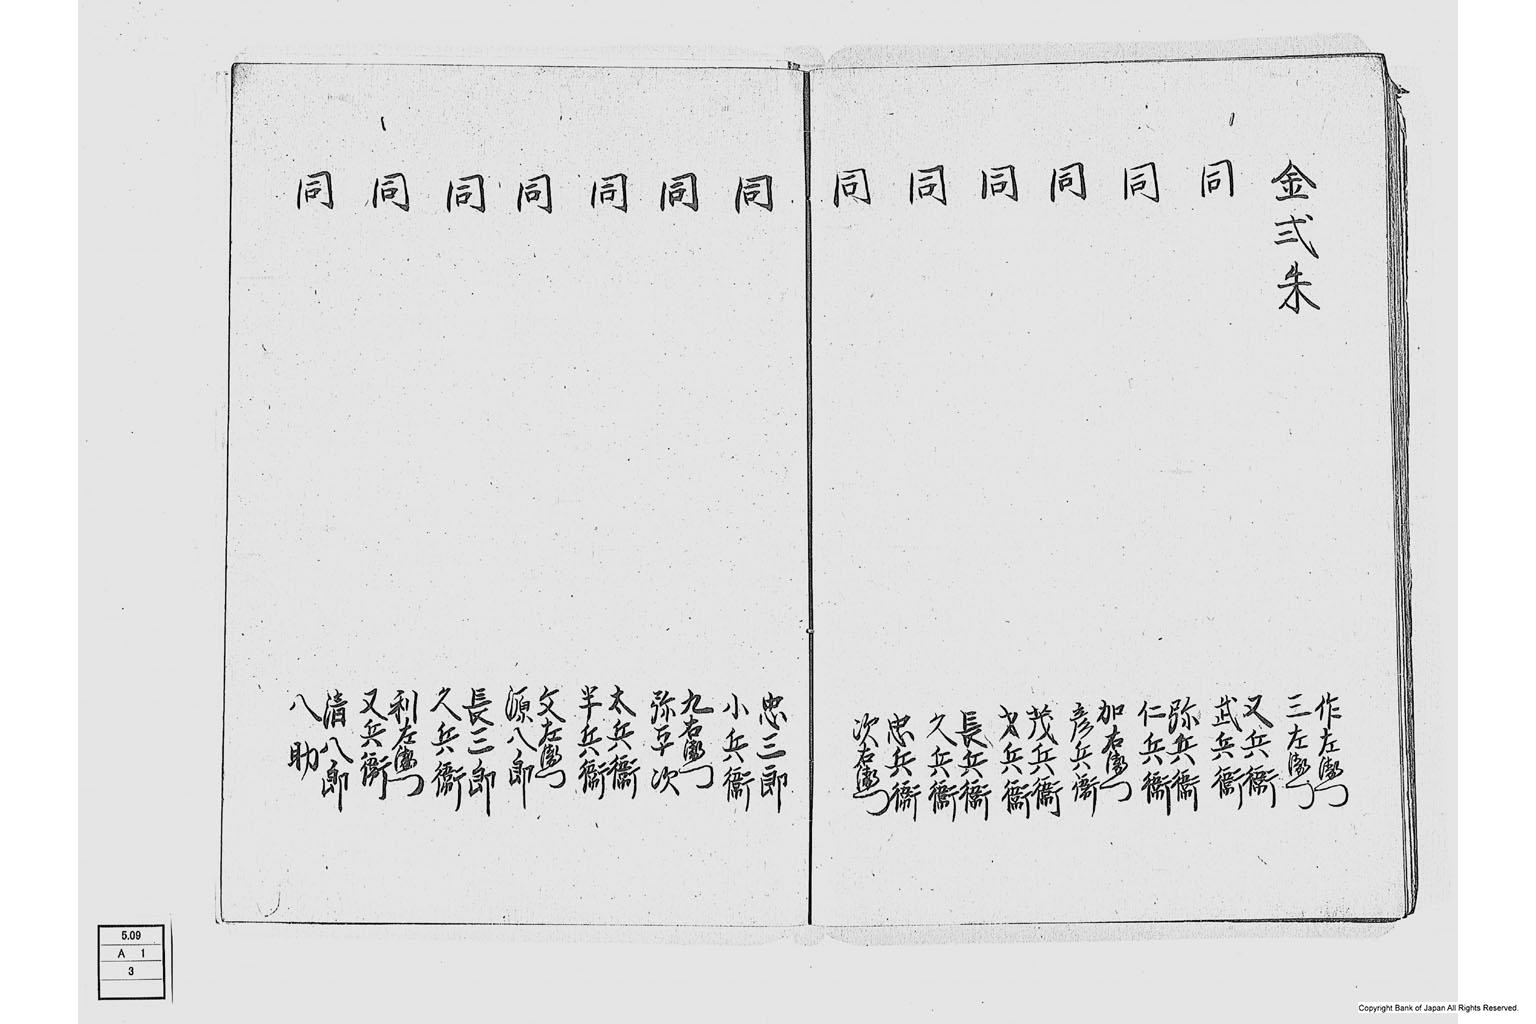 金弐朱
作左衛門
三左衛門
同
又兵衛
武兵衛
同
弥兵衛
仁兵衛
同
加右衛門
彦兵衛
同
茂兵衛
才兵衛
同
長兵衛
久兵衛
同
忠兵衛
次右衛門
同
忠三郎
小兵衛
同
九右衛門
弥平次
同
太兵衛
半兵衛
同
文左衛門
源八郎
同
長三郎
久兵衛
同
利左衛門
又兵衛
同
清八郎
八助
5.09
A 1
3
Copyright Bank of Japan All Rights Reserved.